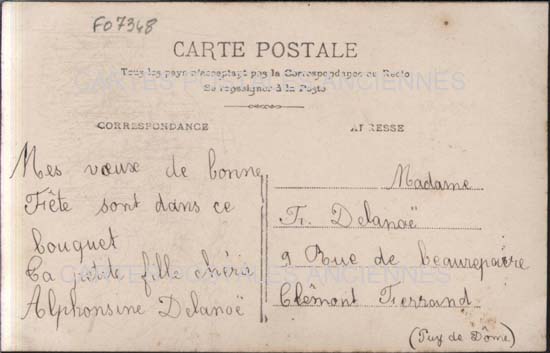 F07348
CARTE POSTALE
Tous les pays n'acceptant pas la Correspondance au Recto
Se renseigner à la Poste
CARTES POSTALES ANCIENNES
CORRESPONDANCE
ADRESSE
Mes vœux de bonne
Fête sont dans ce
bouquet
Ta petite fille chérie
Alphonsine Delanoë
Madame
Fr. Delanoë
9 Rue de beaurepaire
Clêmont Ferrand
(Puy de Dôme)
CARTES POSTALES ANCIENNES